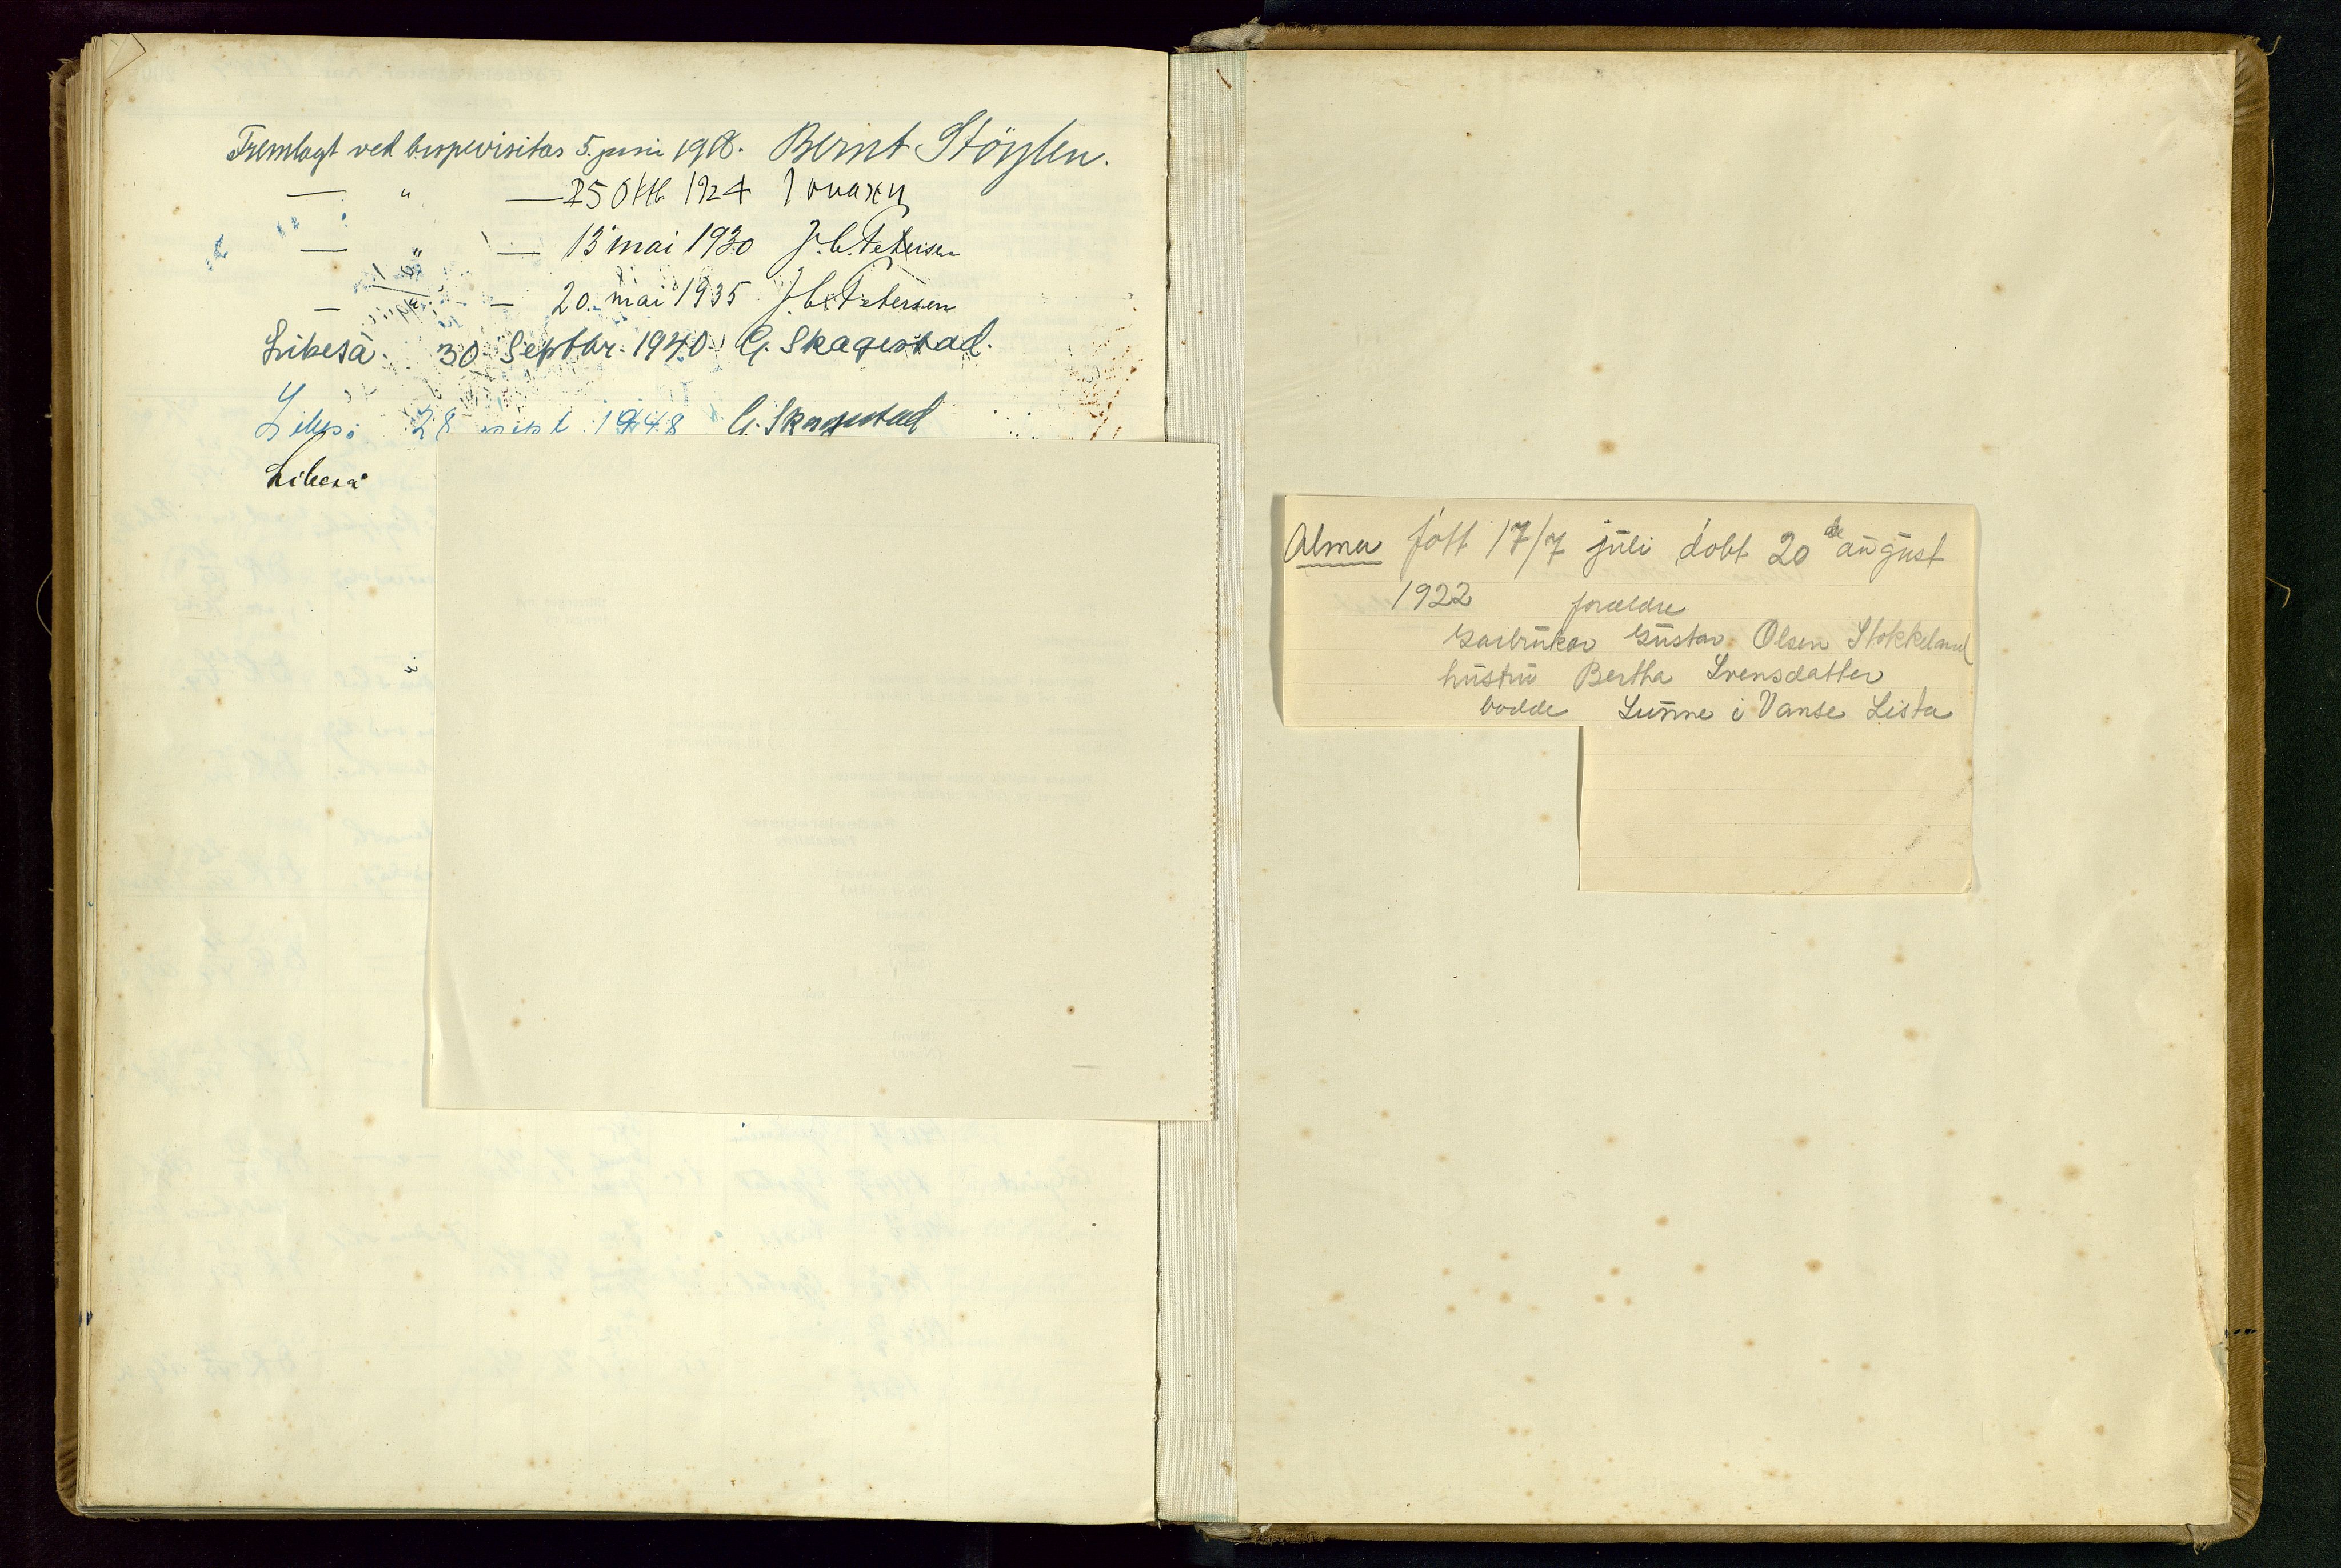 Fremlagt ved bispevisitas 5. juni 1918. Bernt Støylen.
— " — 25 Oktb 1924
— " — 13 mai 1930 J. C. Petersen
— — 20. mai 1935 J. C. Petersen
Likeså. 30 Septbr. 1940. G. Skagestad.
Likeså 28 sept 1948 G. Skagestad
Likeså
Alma fött 17/7 juli döbt 20de august
1922 foreldre
Garbrüker Güstav Olsen Stokkeland
hüstrü Bertha Svensdatter
bodde Lünne i Vanse Lista